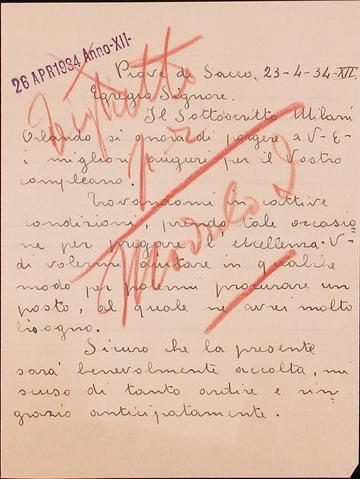 26 APR 1934 Anno-XII-
Piove di Sacco, 23-4-34-XII.
Egregio Signore.
Il Sottoscritto Milani
Orlando si onora di porgere a V-E-
i migliori auguri per il Vostro
compleano.
Trovandomi in cattive
condizioni, prendo tale occasio
ne per pregare l' eccellenza-V-
di volermi aiutare in qualche
modo per potermi procurare un
posto, al quale ne avrei molto
bisogno.
Sicuro che la presente
sarà benevolmente accolta, mi
scuso di tanto ardire e rin
grazio anticipatamente.